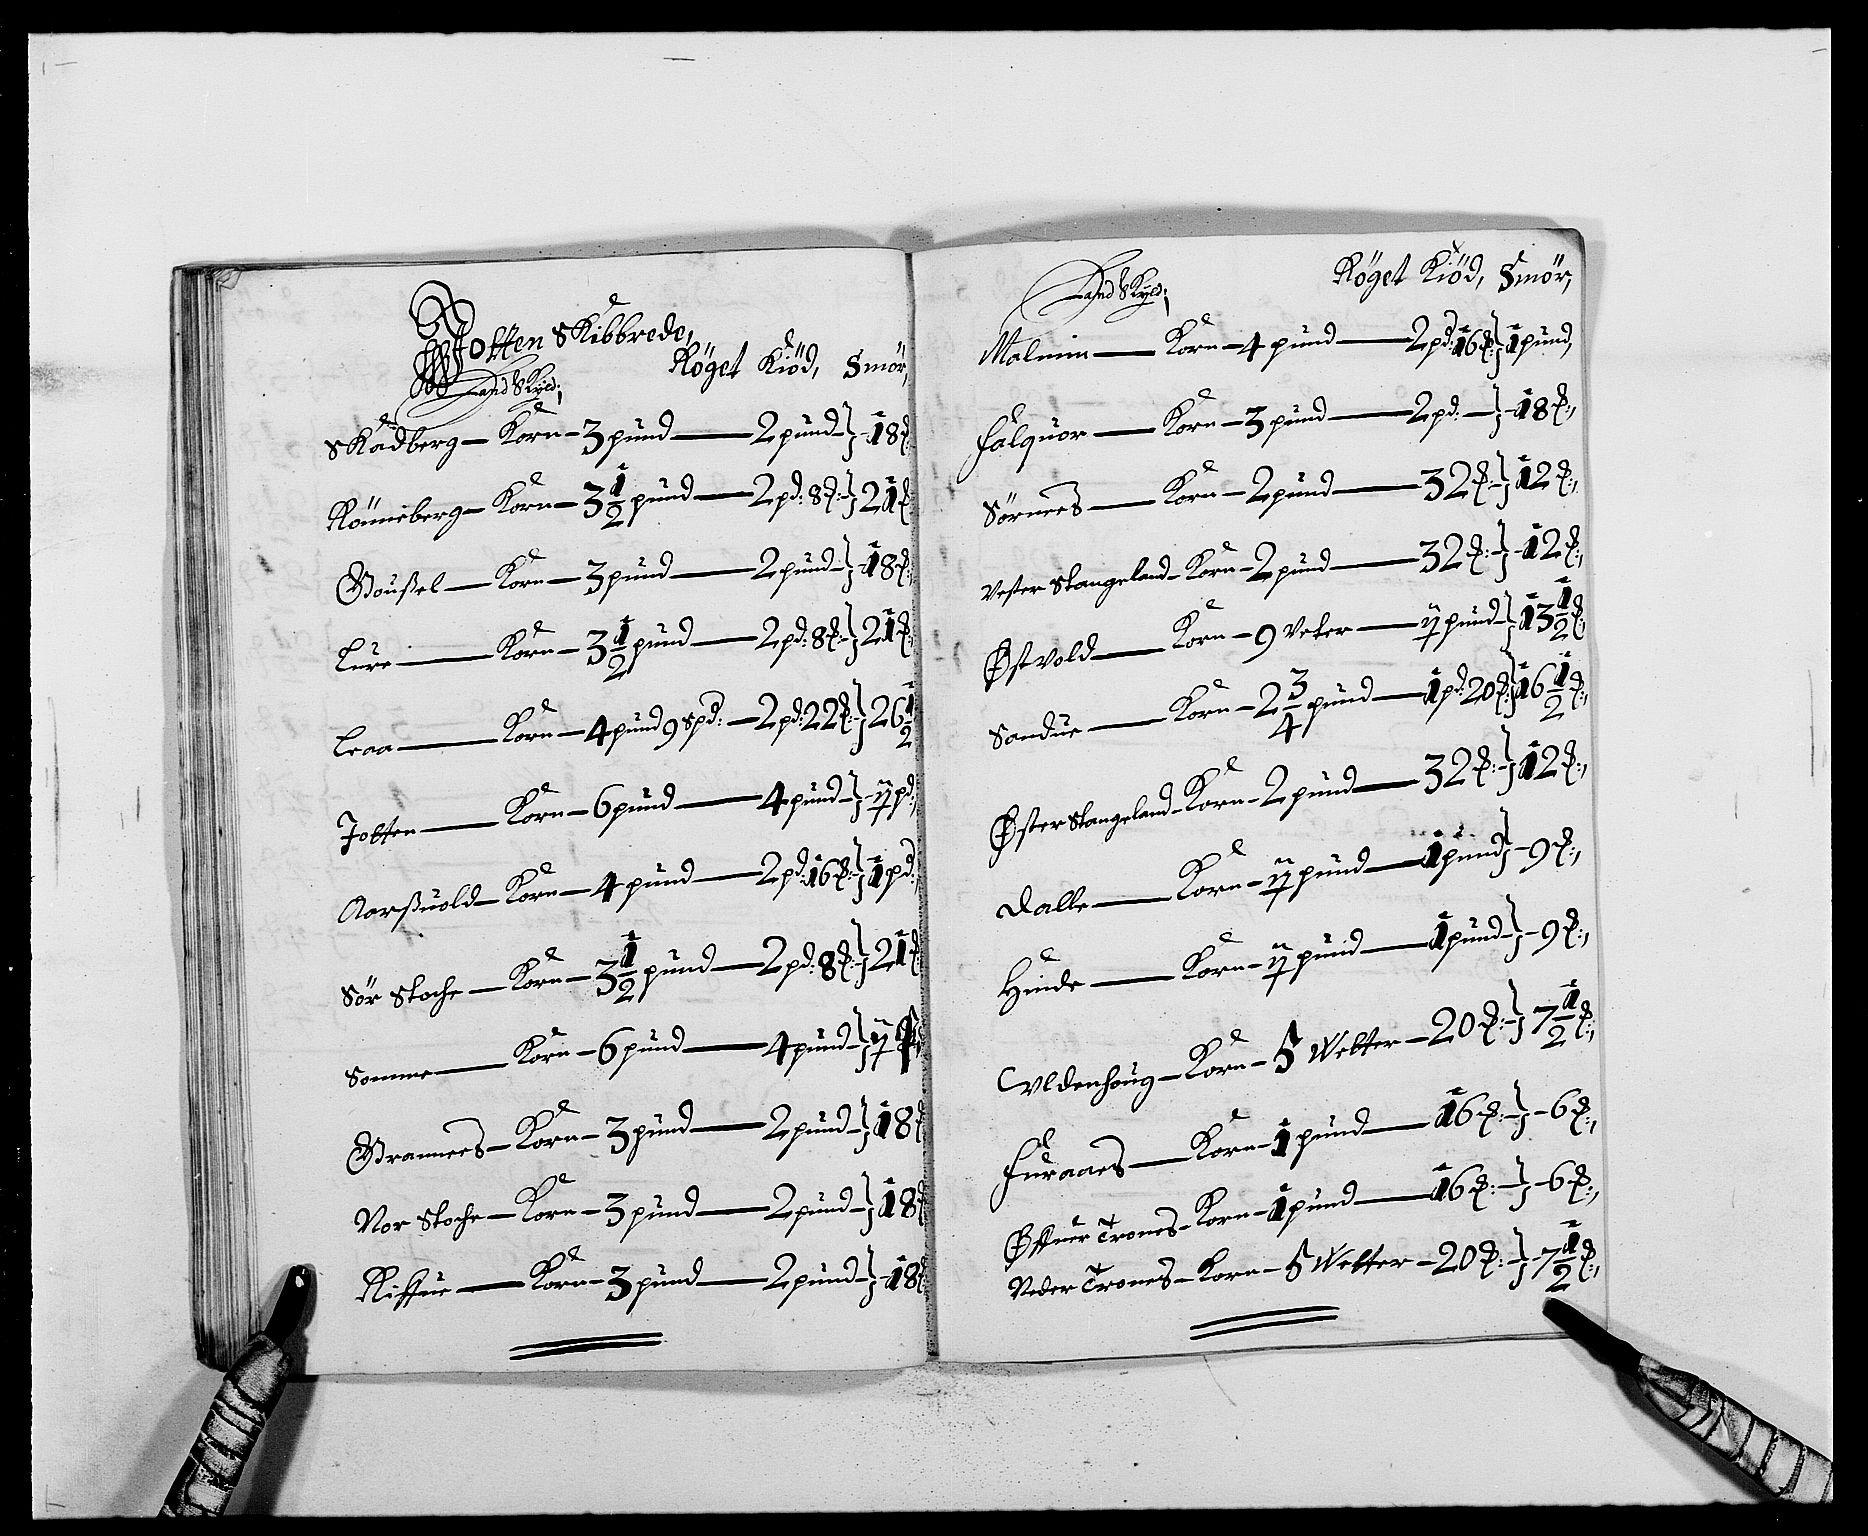 Jotten Skibbrede,
Röget Kiöd, Smör,
Landskyld;
Skadberg – Korn – 3 pund – 2 pund – 18 ℔:
Rönneberg – Korn – 3 1/2 pund – 2 pd: 8 ℔: – 21 ℔:
Goußel – Korn – 3 pund – 2 pund – 18 ℔:,
Lure – Korn – 3 1/2 pund – 2 pd: 8 ℔: – 21 ℔:,
Leaa – Korn – 4 pund 9 Spd: – 2 pd: 22 ℔: 26 1/2
Jotten – Korn – 6 pund – 4 pund – ij pd:,
Aarßuold – Korn – 4 pund – 2 pd: 16 ℔: – 1 pd:,
Sör Stoche – Korn – 3 1/2 pund – 2 pd: 8 ℔: 21 ℔:
Somme – Korn – 6 pund – 4 pund – ij
Grannees – Korn – 3 pund – 2 pund – 18 ℔
Nor Stoche – Korn – 3 pund – 2 pund – 18 ℔
Riffue – Korn – 3 pund – 2 pund – 18 ℔:
Röget Kiöd, Smör,
Landskyld;
Malmin – Korn – 4 pund – 2 pd: 16 ℔: 1 pund,
Folquor – Korn – 3 pund – 2 pd: – 18 ℔:,
Sörnees – Korn – 2 pund – 32 ℔: – 12 ℔:,
Vester Stangeland – Korn – 2 pund – 32 ℔: – 12 ℔:,
Østvold – Korn – 9 Veter – ij pund – 13 1/2 ℔:,
Sandue – Korn – 2 3/4 pund – 1 pd: 20 ℔: 16 1/2 ℔:,
Øster Stangeland – Korn – 2 pund – 32 ℔: – 12 ℔:,
Dalle – Korn – ij pund – 1 pund – 9 ℔:,
Hinde – Korn – ij pund – 1 pund – 9 ℔:,
Vldenhoug – Korn – 5 Wetter – 20 ℔: – 7 1/2 ℔:,
Furaaes – Korn – 1 pund – 16 ℔: – 6 ℔:,
Øffuer Trones – Korn – 1 pund – 16 ℔: – 6 ℔:,
Neder Trones – Korn – 5 Wetter – 20 ℔: – 7 1/2 ℔:,